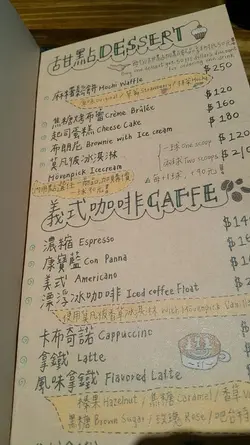 甜點 DESSERT
麻糬鬆餅 Mochi Waffle $250
焦糖烤布蕾 Crème Brûlée $120
起司蛋糕 Cheese Cake $160
布朗尼 Brownie with Ice cream $180
莫凡彼冰淇淋 一球 One scoop $120
Mövenpick Icecream Two scoops $210
義式咖啡 CAFFE
濃縮 Espresso
康寶藍 Con Panna
美式 Americano
漂浮冰咖啡 Iced coffee Float
使用莫凡彼香草冰淇淋 with Mövenpick Vanil
卡布奇諾 Cappuccino
拿鐵 Latte
風味拿鐵 Flavored Latte
榛果 Hazelnut / 焦糖 Caramel / 香草
黑糖 Brown Sugar / 玫瑰 Rose /